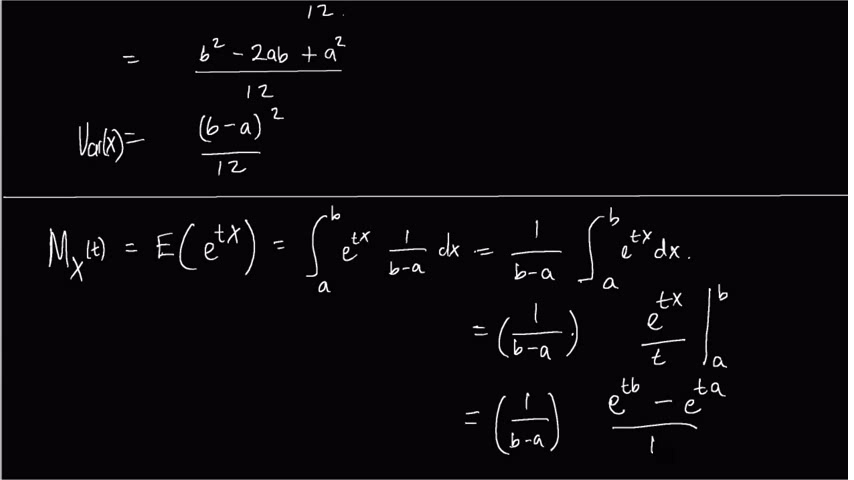 12.
= b² - 2ab + a² / 12
Var(x) = (b-a)² / 12
M_X(t) = E(e^{tX}) = ∫_a^b e^{tx} 1/(b-a) dx = 1/(b-a) ∫_a^b e^{tx} dx.
= (1/(b-a).) e^{tx}/t |_a^b
= (1/(b-a)) e^{tb} - e^{ta} / 1